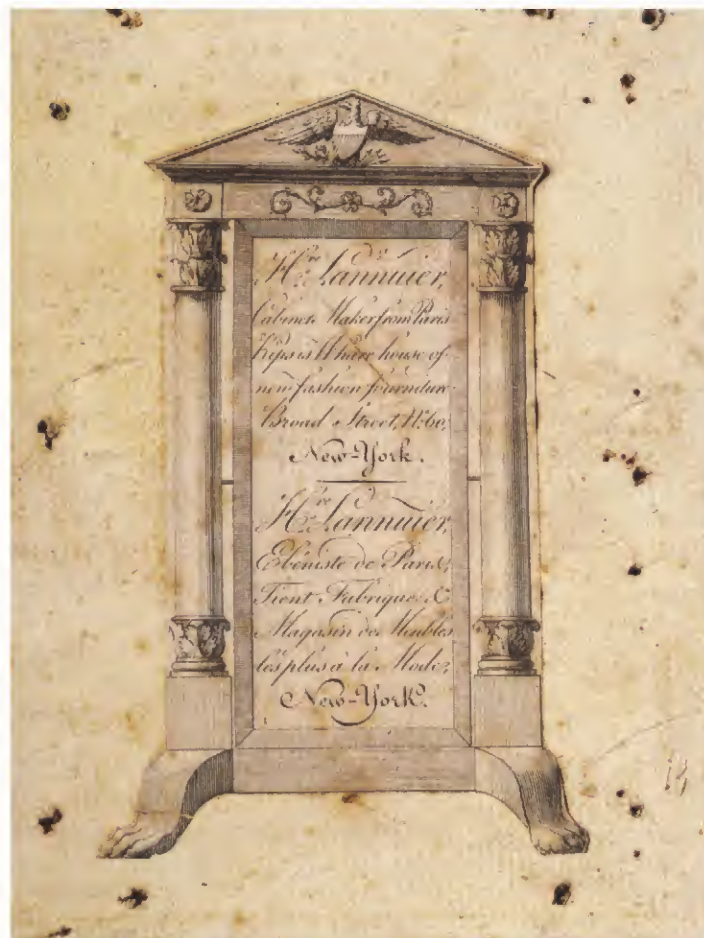 H.re Lannuier,
Cabinet Maker from Paris
Kips is Whare house of
new fashion fourniture
Broad Street, N.º 60,
New-York.
H.re Lannuier,
Ebéniste de Paris,
Tient Fabrique &
Magasin de Meubles
les plus à la Mode,
New-York.